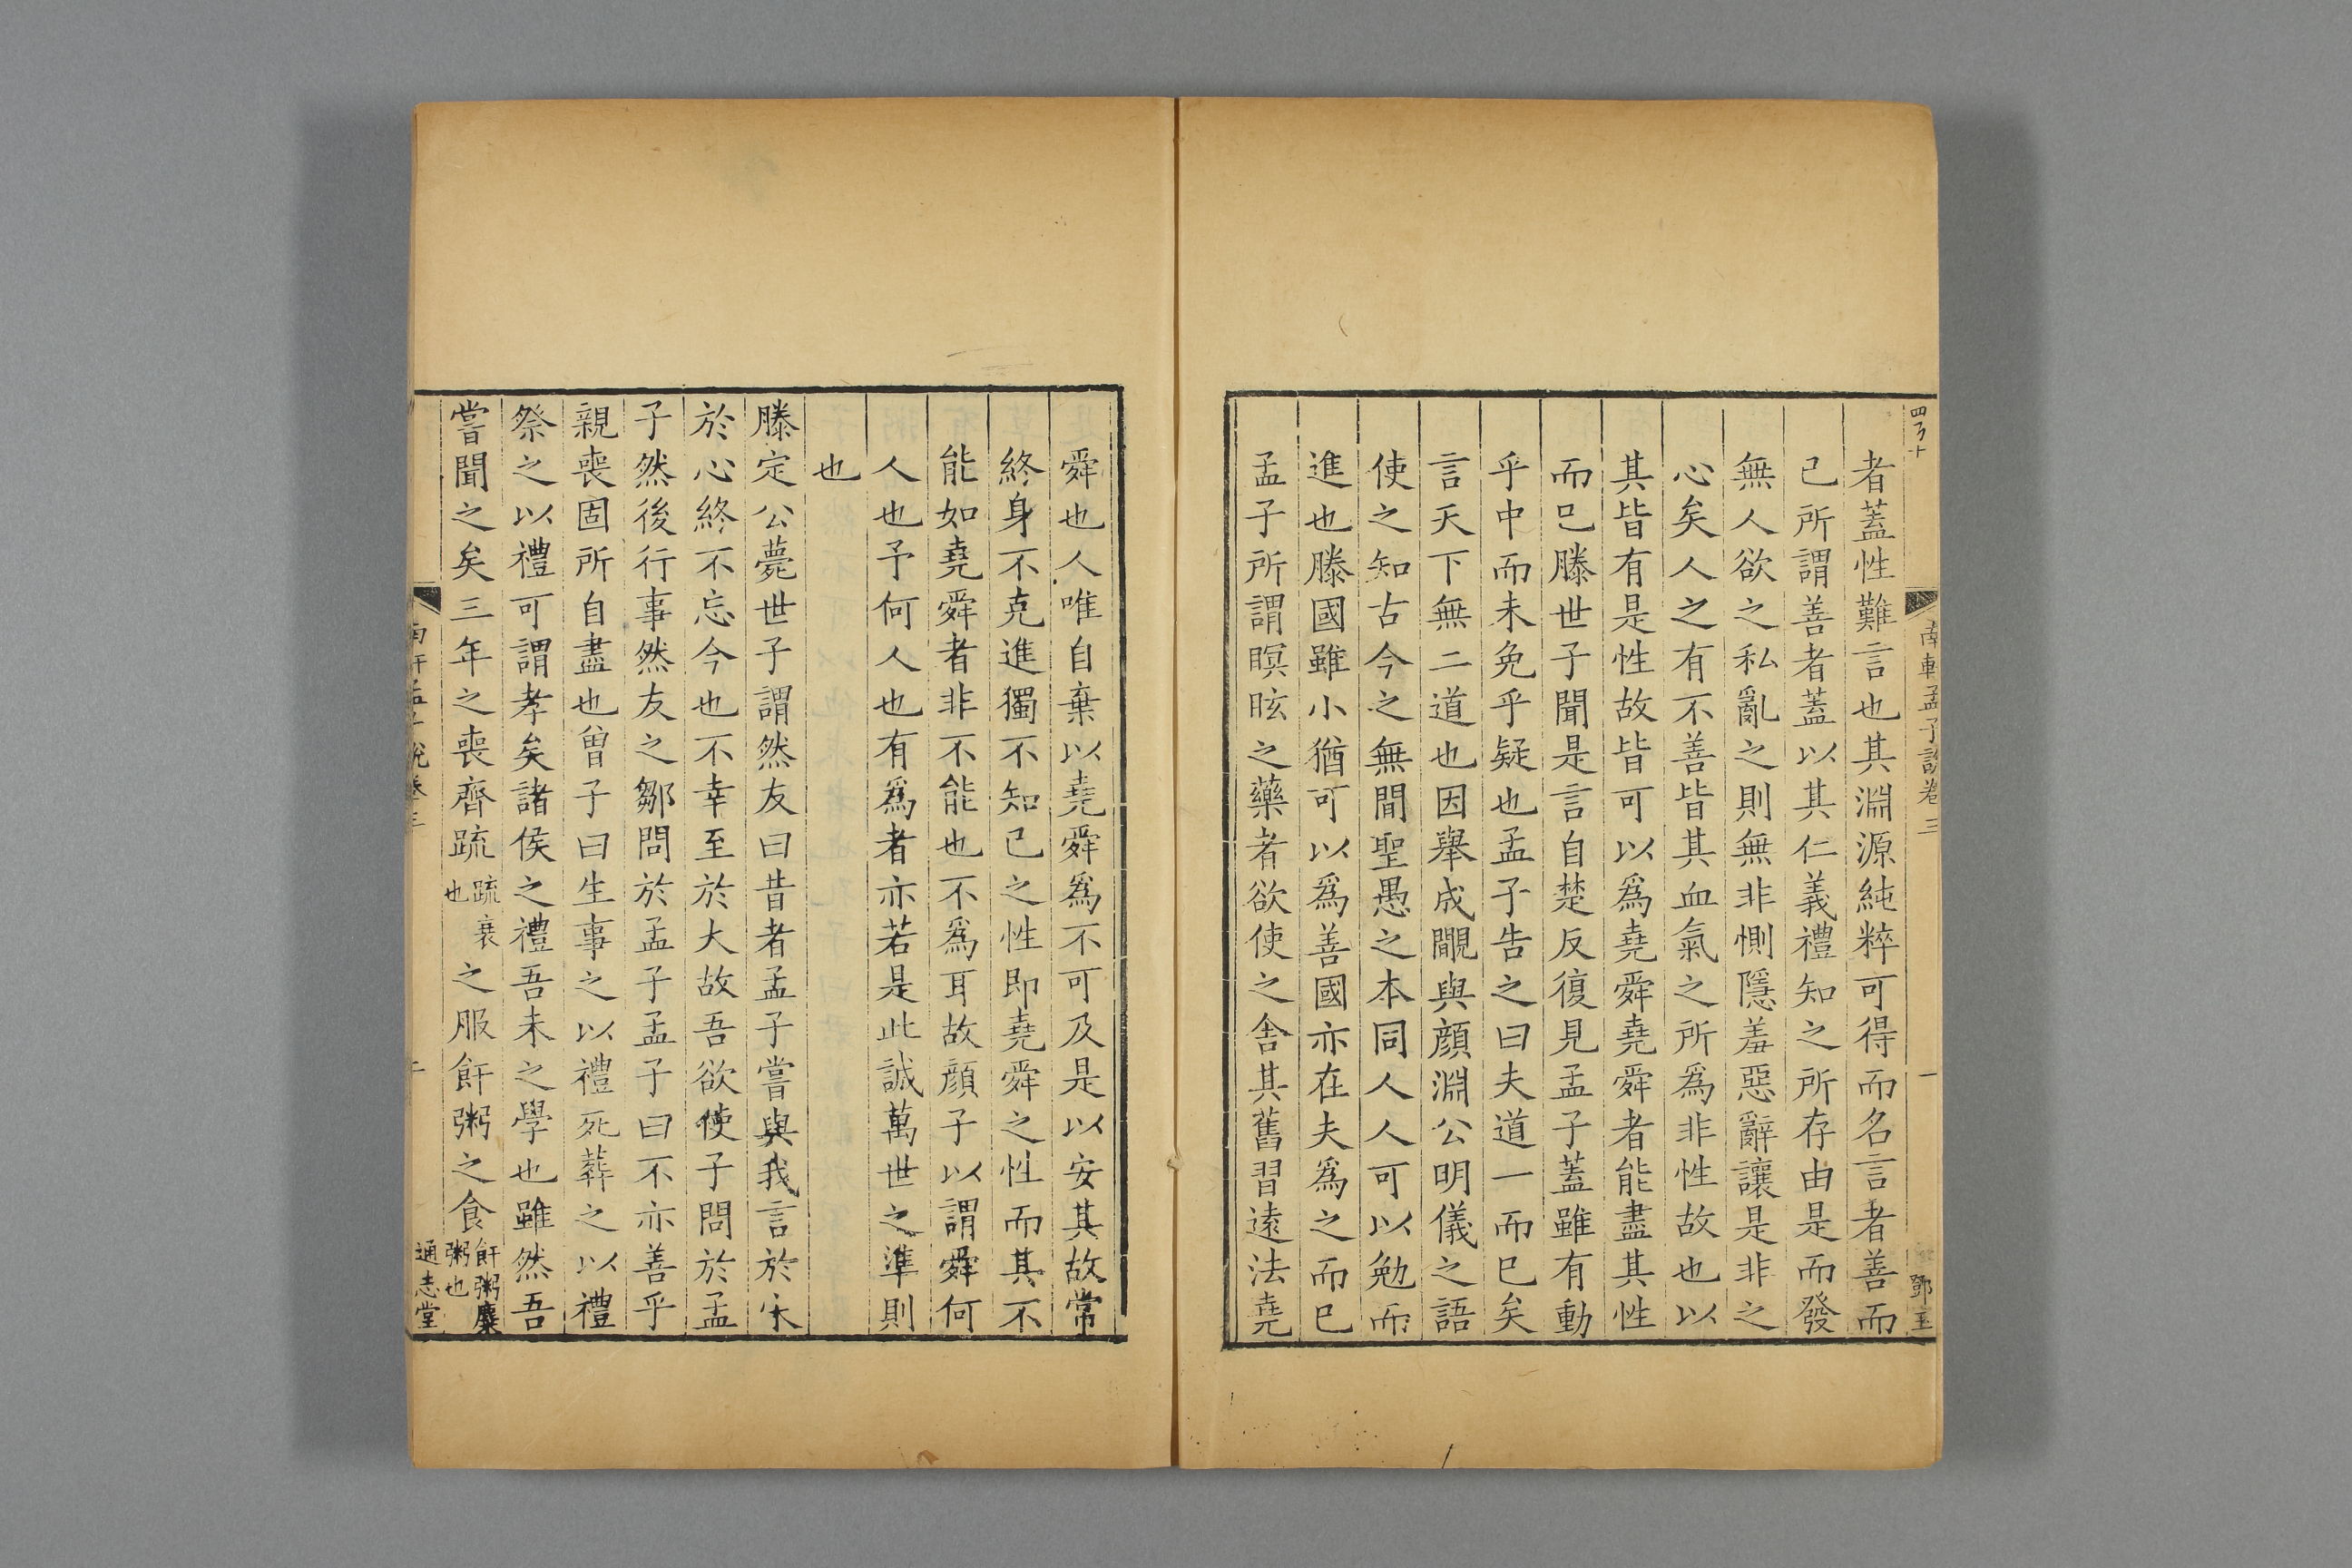 南軒孟子說卷三
一
鄧玉
者蓋性難言也其淵源純粹可得而名言者善而
已所謂善者蓋以其仁義禮知之所存由是而發
無人欲之私亂之則無非惻隱羞惡辭讓是非之
心矣人之有不善皆其血氣之所爲非性故也以
其皆有是性故皆可以爲堯舜堯舜者能盡其性
而已滕世子聞是言自楚反復見孟子蓋雖有動
乎中而未免乎疑也孟子告之曰夫道一而已矣
言天下無二道也因舉成覸與顏淵公明儀之語
使之知古今之無間聖愚之本同人人可以勉而
進也滕國雖小猶可以爲善國亦在夫爲之而已
孟子所謂瞑眩之藥者欲使之舍其舊習遠法堯
舜也人唯自棄以堯舜爲不可及是以安其故常
終身不克進獨不知己之性即堯舜之性而其不
能如堯舜者非不能也不爲耳故顏子以謂舜何
人也予何人也有爲者亦若是此誠萬世之準則
也
滕定公薨世子謂然友曰昔者孟子嘗與我言於宋
於心終不忘今也不幸至於大故吾欲使子問於孟
子然後行事然友之鄒問於孟子孟子曰不亦善乎
親喪固所自盡也曾子曰生事之以禮死葬之以禮
祭之以禮可謂孝矣諸侯之禮吾未之學也雖然吾
嘗聞之矣三年之喪齊疏疏衰也之服飦粥之食飦粥麋粥也
南軒孟子說卷三
通志堂